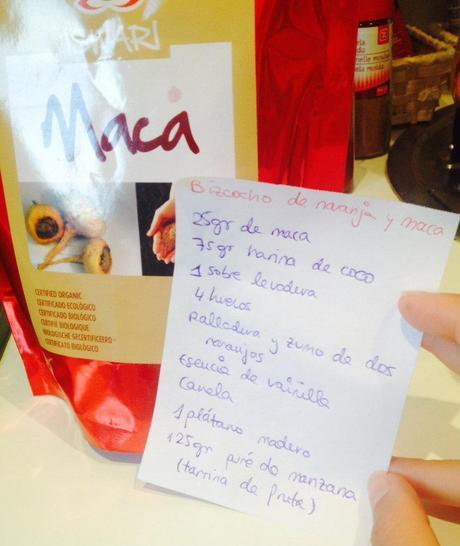 ISWARI
Maca
CERTIFIED ORGANIC
CERTIFICADO ECOLÓGICO
CERTIFICADO BIOLÓGICO
CERTIFIÉ BIOLOGIQUE
BIOLOGISCHE GECERTIFICEERD
CERTIFICATO BIOLÓGICO
Bizcocho de naranja y maca
25gr de maca
75gr harina de coco
1 sobre levadura
4 huevos
Ralladura y zumo de dos
naranjas
Esencia de vainilla
Canela
1 plátano maduro
125gr puré de manzana
(tarrina de fruta)